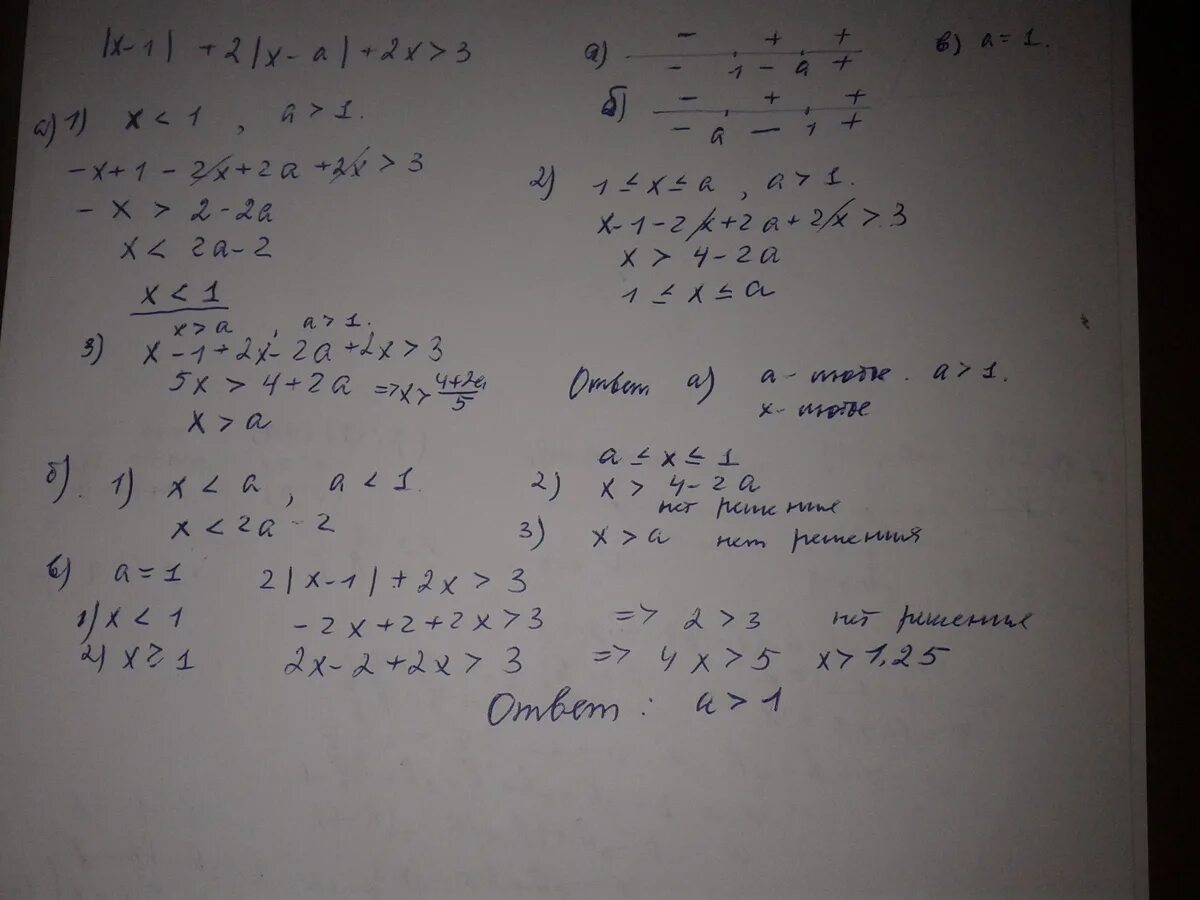 |x-1| + 2|x-a| + 2x > 3
а) - + +
- 1 - a +
в) a = 1.
б) - + +
- a - 1 +
а) 1) x < 1 , a > 1.
-x+1-2x+2a+2x > 3
-x > 2-2a
x < 2a-2
x < 1
2) 1 ≤ x ≤ a , a > 1.
x-1-2x+2a+2x > 3
x > 4-2a
1 ≤ x ≤ a
3) x > a , a > 1.
x-1+2x-2a+2x > 3
5x > 4+2a => x > (4+2a)/5
x > a
Ответ а) a - любые. a > 1.
x - любые
б). 1) x < a , a < 1.
x < 2a-2
a ≤ x ≤ 1
2) x > 4-2a
нет решения
3) x > a нет решения
в) a = 1 2|x-1| + 2x > 3
1) x < 1 -2x+2+2x > 3 => 2 > 3 нет решения
2) x ≥ 1 2x-2+2x > 3 => 4x > 5 x > 1,25
Ответ: a > 1